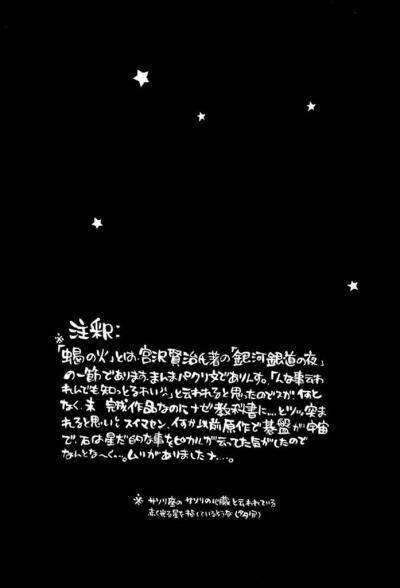 ※ 注釈:
「蠍の火」とは、宮沢賢治氏著の「銀河鉄道の夜」
の一節であります。まんまパクリ文でありんす。「んな事云わ
れんでも知っとるわい」と云われると思ったのですが何と
なく。未完成作品なのにナゼ教科書に…とツッ突ま
れると思いヒスイマセン。以前原作で碁盤が宇宙
で、石は星だ的な事をヒカルが云ってた気がしたので
なんとな〜く…。ムリがありましたナ…。
※ サソリ座の サソリの心臓と云われている
赤く光る星を指しているそうな